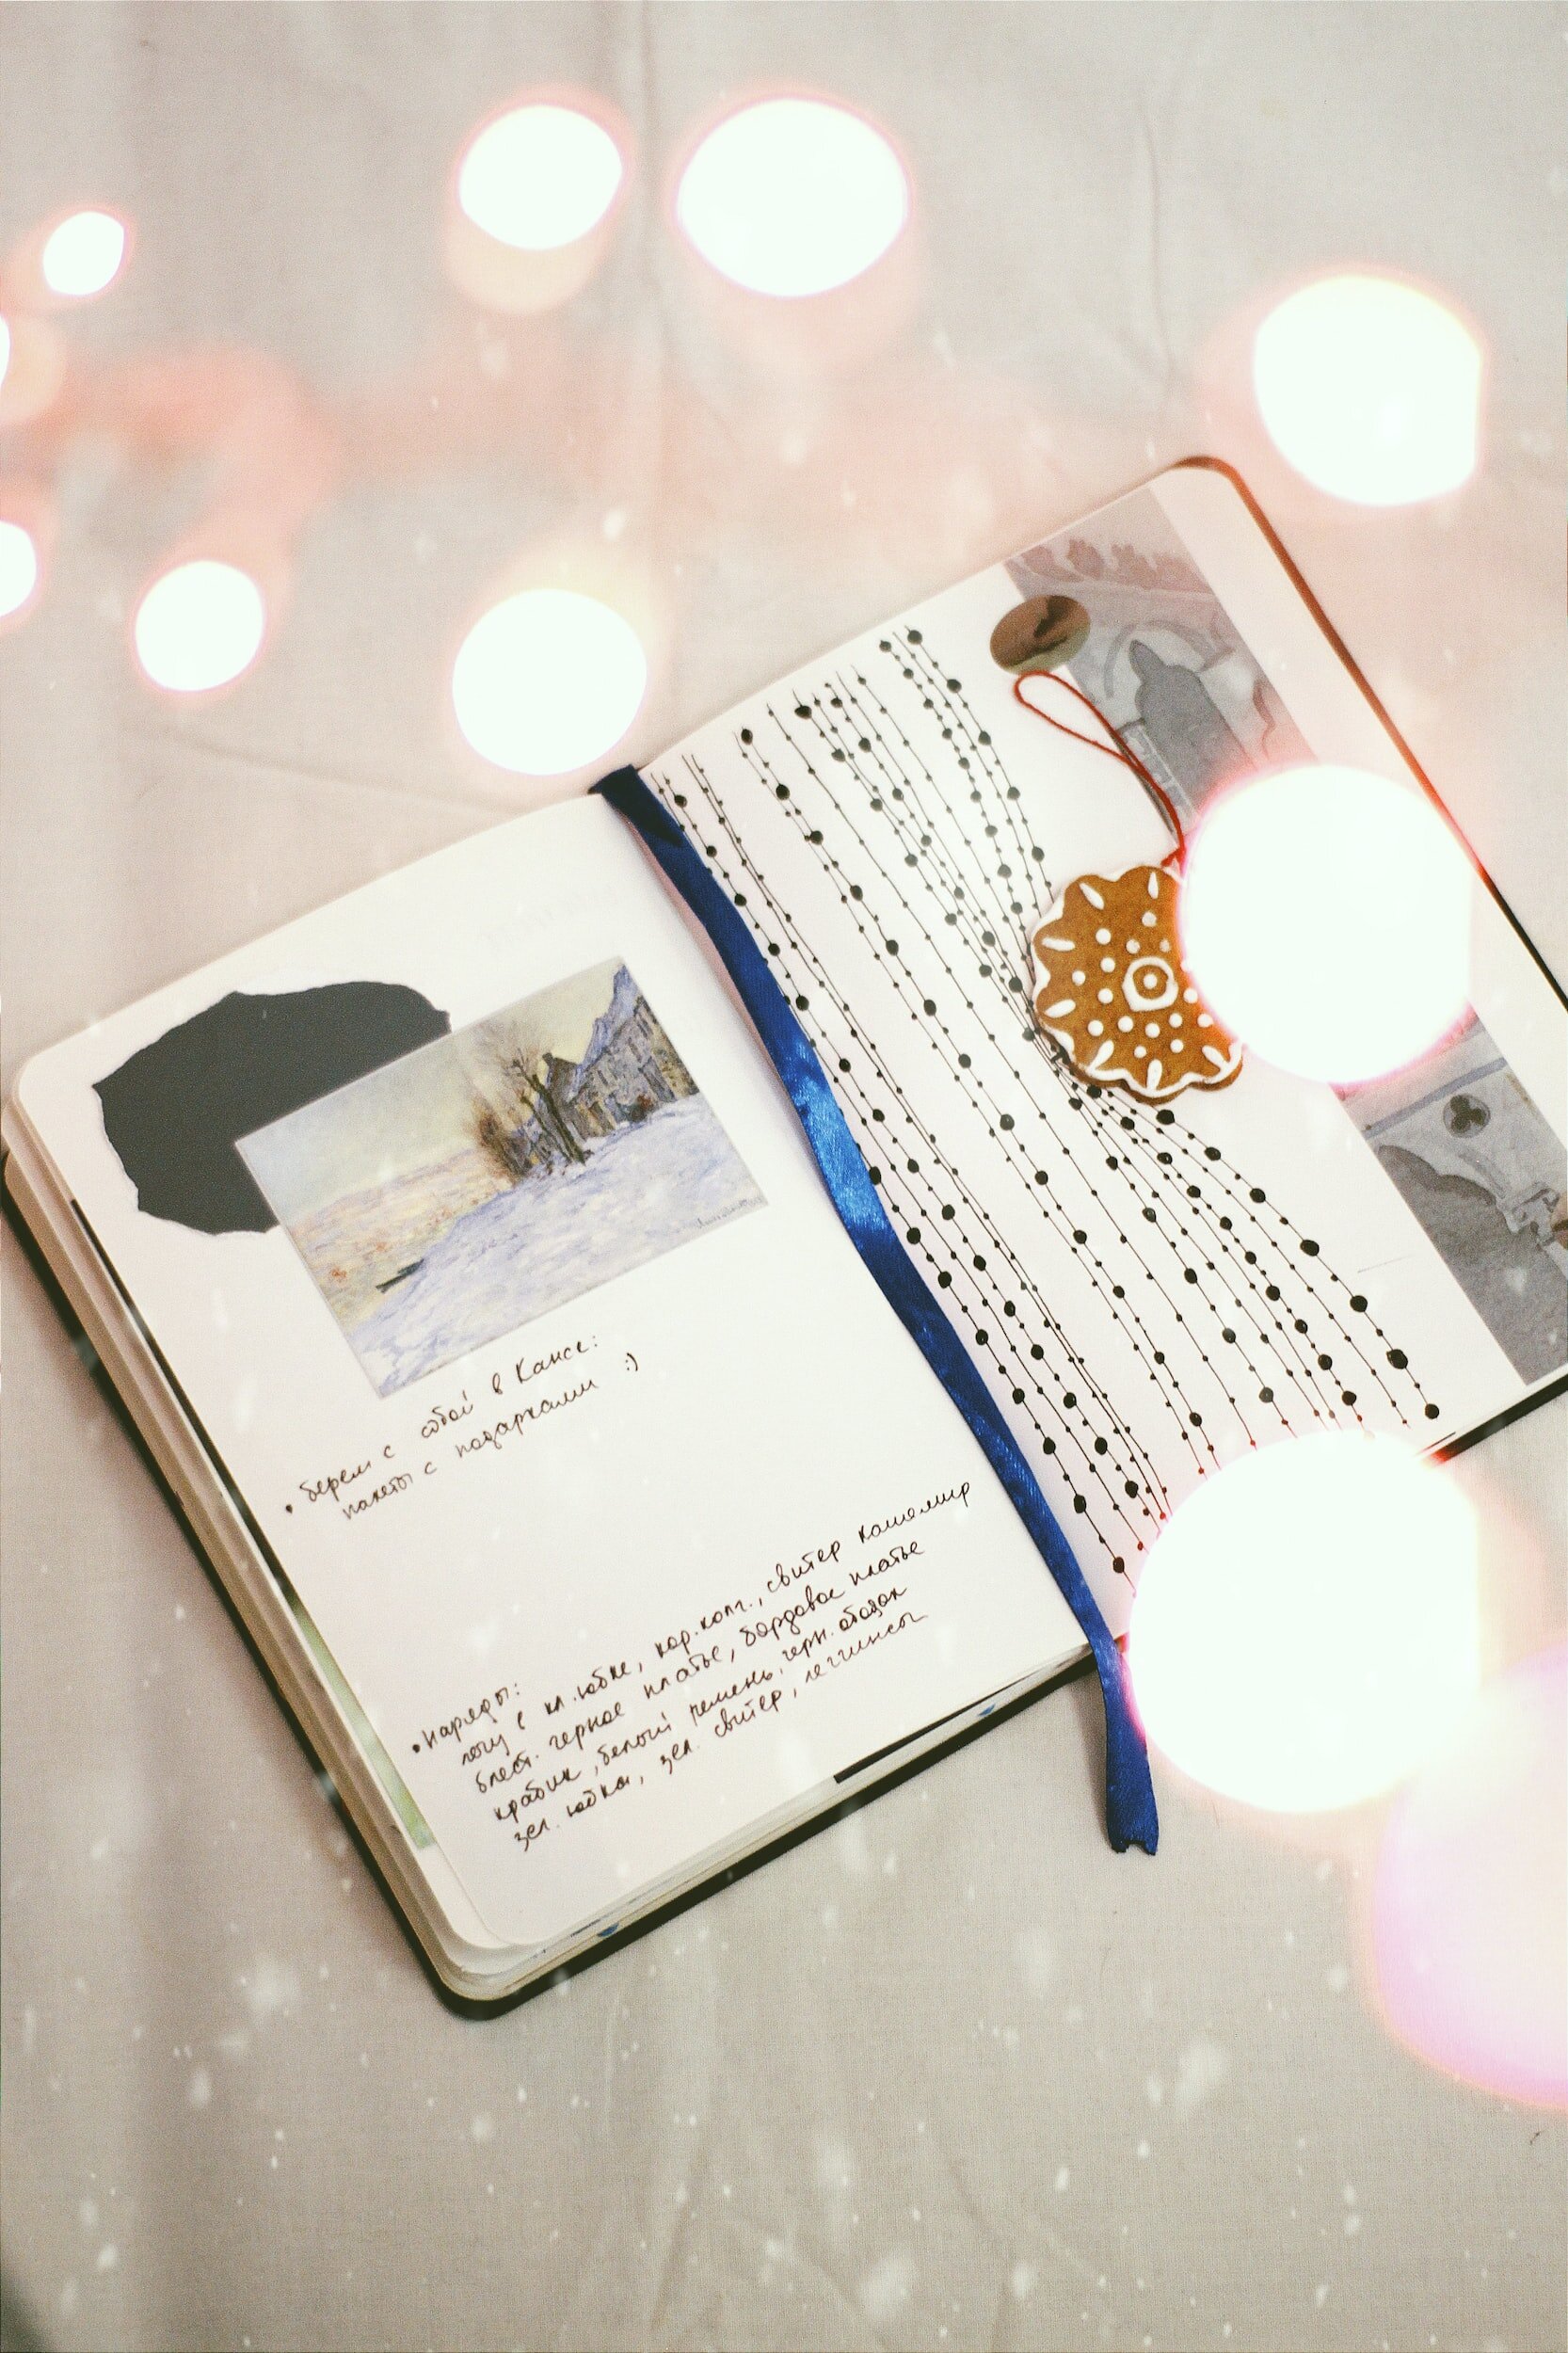 • берем с собой в Канск:
пакеты с подарками :)
• наряды:
лечу в кл. юбке, кор. колг., свитер кашемир
блест. черное платье, бордовое платье
крабик, белый ремень, черн. ободок
зел. юбка, зел. свитер, леггинсы